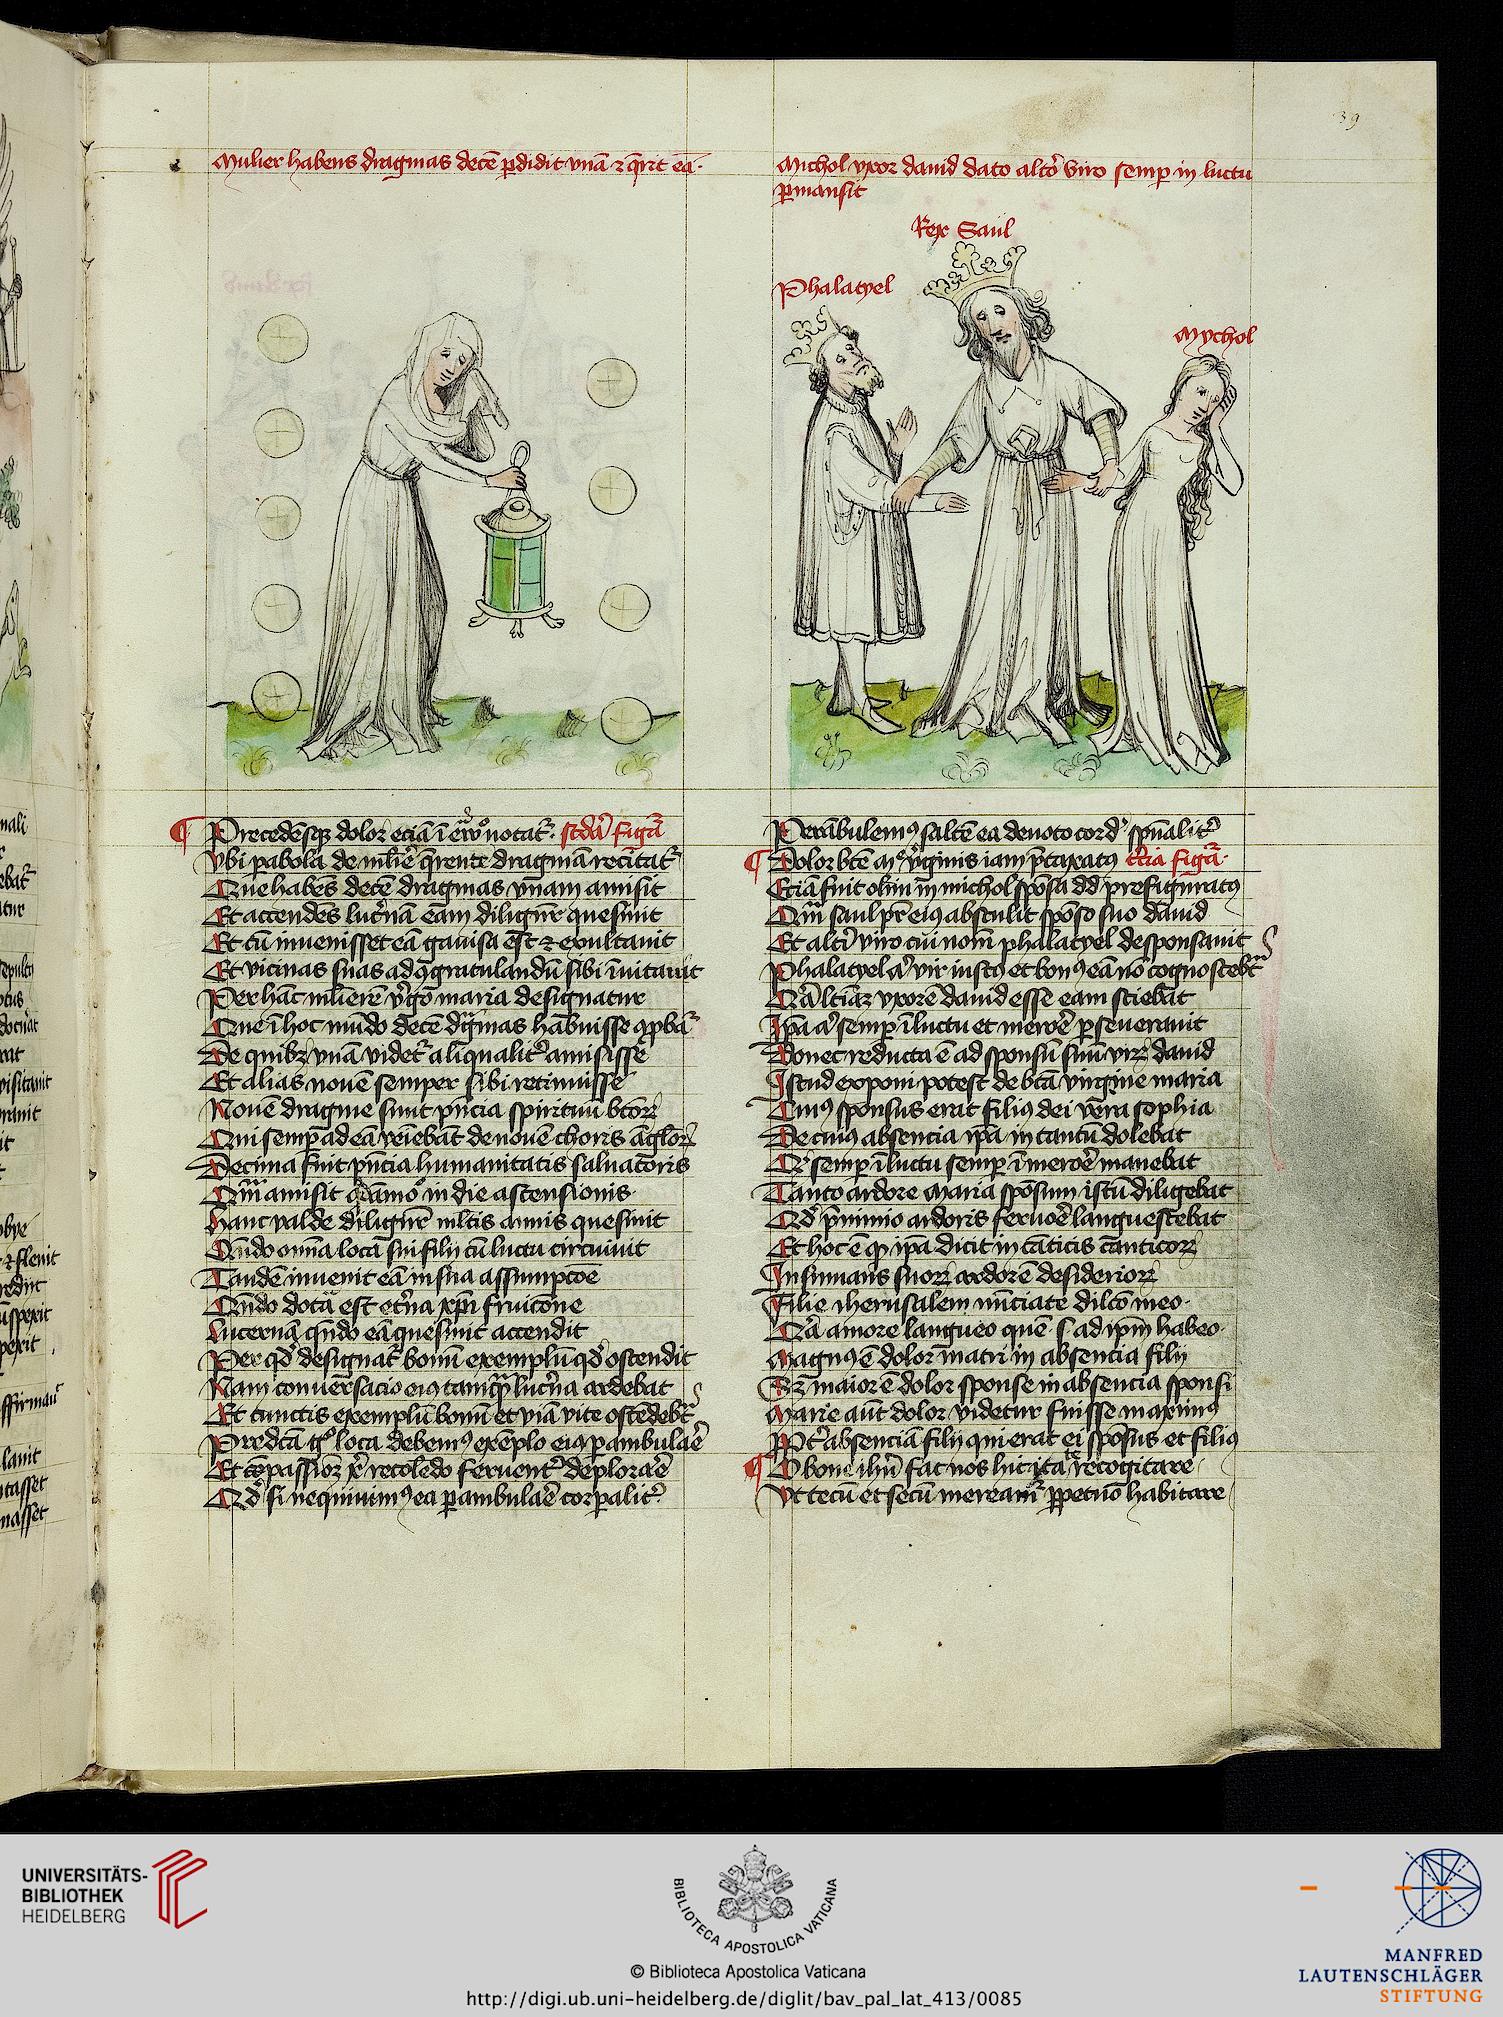 39
Mulier habens dragmas decē ꝑdidit vnā ⁊ q̄rit eā·
Michol vxor dauid dato alt'o viro semꝑ in luctu
ꝑmansit
Rex Saul
Phalatyel
Mychol
Precedēsqꝫ dolor eciā ī notat᷑· scd'a figᷓa
Vbi ꝑabola de mliē q̄rente dragmā recitat᷑
Que habēs decē dragmas vnam amisit
Et accendēs luc'nā eam diligēt' quesiuit
Et cū inuenisset eā gauisa est ⁊ exultauit
Et vicinas suas ad ꝯgratulandū sibi īuitauit
Per hāc mlierē v'go maria designatur
Que ī hoc mūdo decē dragmas habuisse ꝓbat᷑
De quibꝫ vnā videt᷑ aliqualit' amisisse
Et alias nouē semper sibi retinuisse
Nouē dragme sunt pn̄cia spirituū btōꝝ
Qui semꝑ ad eā veniebāt de nouē choris āgloꝝ
Decima fuit pn̄cia humanitatis saluatoris
Qm̄ amisit in die ascensionis·
Hanc valde diligent' mltis annis quesiuit
Qn̄do omīa loca sui filij cū luctu circuiuit
Tandē inuenit eā in sua assumpcōe
Qn̄do dota est et'na xp̄i fruicōne
Lucernā qn̄do eā quesiuit accendit
Per qd' designat᷑ bonū exemplū qd' ostendit
Nam conuersacio eiꝰ tamqᷓ luc'na ardebat
Et cunctis exemplū bonū et viā vite ostēdebat
Predcā g° loca debemꝰ exēplo eiꝰ ꝑambulaē
Et cōpassioꝫ x' recolēdo feruent' deploraē
Qd' si nequiuimꝰ ea ꝑambulaē corꝑalit'·
Perābulemꝰ saltē ea deuoto cord' spūalit'
Dolor btē m° v'ginis iam p'taxatꝰ t'cia figᷓa·
Eciā fuit olim ī michol spōsa dd prefiguratꝰ
Qm̄ saul pr̄ eiꝰ abstulit spōso suo dauid
Et alt'i viro cui nom̄ phalatyel desponsauit
Phalatyel a' vir iustꝰ et bonꝰ eā nō cognoscebat
Qᷓ alt'iꝰ vxorē dauid esse eam sciebat
Ip̄a a' semꝑ ī luctu et meroē ꝑseuerauit
Donec reducta ē ad sponsū suū virꝫ dauid
Istud exponi potest de btā virgine maria
Cuiꝰ sponsus erat filiꝰ dei vera sophia
De cuiꝰ absencia ip̄a in tantū dolebat
Qd' semꝑ ī luctu semꝑ ī meroē manebat
Tanto ardore maria spōsum istū diligebat
Qd' p̄ nimio ardoris feruoē languescebat
Et hoc ē qd' ip̄a dicit in cāticis canticoꝝ
Insinuans suoꝝ ardorē desiderioꝝ
Filie iherusalem nūciate dilcō meo·
Qᷓ amore langueo quē ad ip̄m habeo·
Magnꝰ ē dolor matri in absencia filij
Sꝫ maior ē dolor sponse in absencia sponsi
Marie aūt dolor videtur fuisse maximꝰ
Ppt' absenciā filij qui erat ei spōsus et filiꝰ
O bone ihū fac nos hic ita recogitare
Vt tecū et secū mereamᷓ ꝑpetuo habitare
UNIVERSITÄTS-
BIBLIOTHEK
HEIDELBERG
BIBLIOTECA APOSTOLICA VATICANA
© Biblioteca Apostolica Vaticana
http://digi.ub.uni-heidelberg.de/diglit/bav_pal_lat_413/0085
MANFRED
LAUTENSCHLÄGER
STIFTUNG